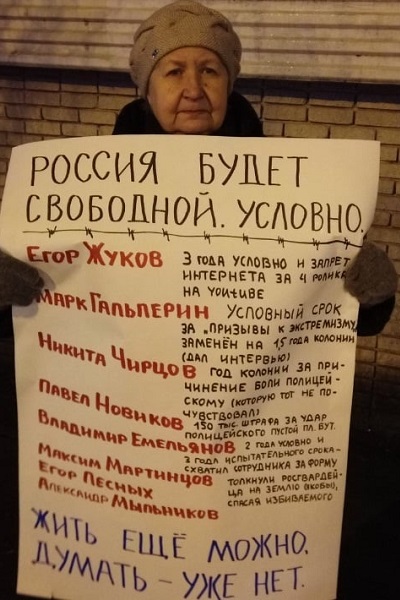 РОССИЯ БУДЕТ
СВОБОДНОЙ. УСЛОВНО.
ЕГОР ЖУКОВ 3 ГОДА УСЛОВНО И ЗАПРЕТ
ИНТЕРНЕТА ЗА 4 РОЛИКА
НА YOUTUBE
МАРК ГАЛЬПЕРИН УСЛОВНЫЙ СРОК
ЗА „ПРИЗЫВЫ К ЭКСТРЕМИЗМУ„
ЗАМЕНЁН НА 1,5 ГОДА КОЛОНИИ
(ДАЛ ИНТЕРВЬЮ)
НИКИТА ЧИРЦОВ ГОД КОЛОНИИ ЗА ПРИ-
ЧИНЕНИЕ БОЛИ ПОЛИЦЕЙ-
СКОМУ (КОТОРУЮ ТОТ НЕ ПО-
ЧУВСТВОВАЛ)
ПАВЕЛ НОВИКОВ 150 ТЫС. ШТРАФА ЗА УДАР
ПОЛИЦЕЙСКОГО ПУСТОЙ ПЛ. БУТ.
ВЛАДИМИР ЕМЕЛЬЯНОВ 2 ГОДА УСЛОВНО И
3 ГОДА ИСПЫТАТЕЛЬНОГО СРОКА-
СХВАТИЛ СОТРУДНИКА ЗА ФОРМУ
МАКСИМ МАРТИНЦОВ
ЕГОР ЛЕСНЫХ
АЛЕКСАНДР МЫЛЬНИКОВ
ТОЛКНУЛИ РОСГВАРДЕЙ-
ЦА НА ЗЕМЛЮ (ЯКОБЫ),
СПАСАЯ ИЗБИВАЕМОГО
ЖИТЬ ЕЩЁ МОЖНО.
ДУМАТЬ – УЖЕ НЕТ.